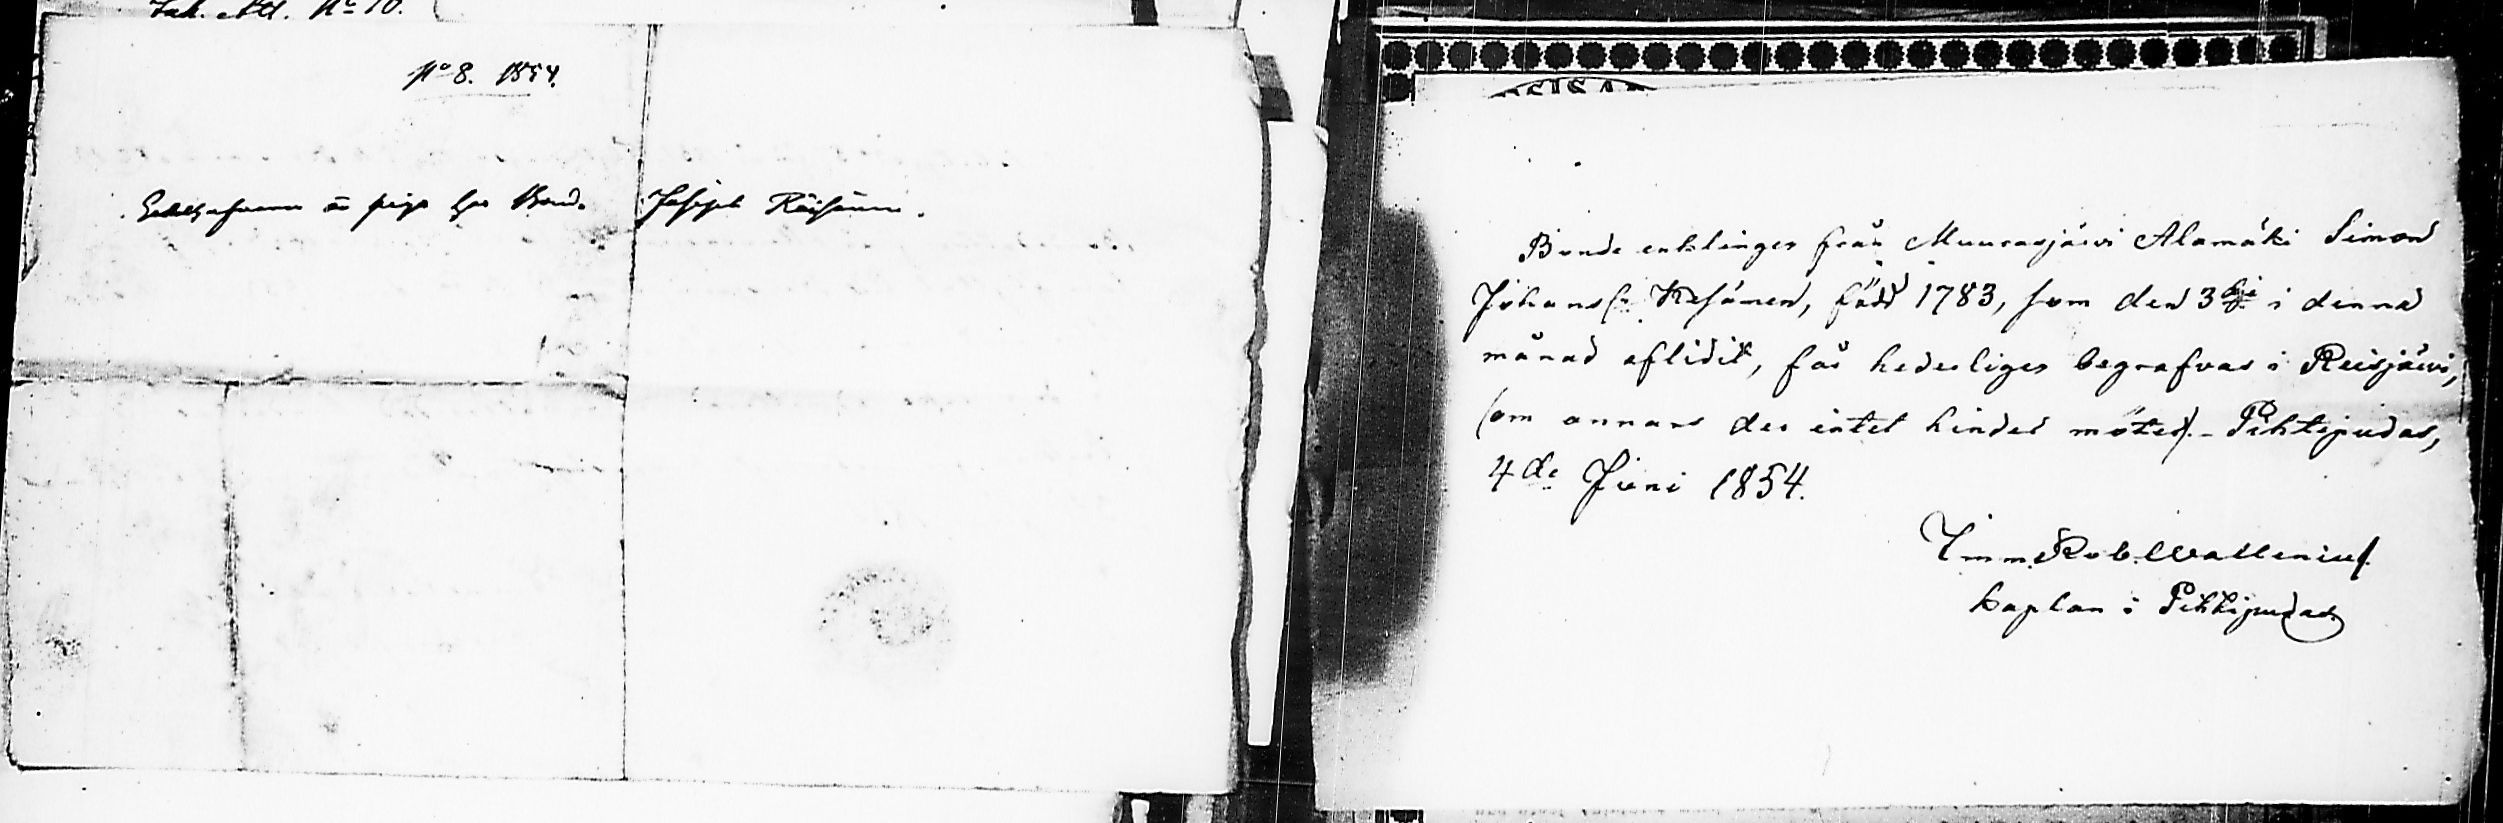 Inh. Att. No 10.
No 8. 1854.
är piga hos Bond. Joseph Räisänen.
Bonde enklingen från Muurasjärvi Alamäki Simon
Johanss. Kesänen, född 1783, som den 3dje i denna
månad aflidit, får hederligen begrafvas i Reisjärvi,
som annars der intet hinder möter. - Pihtipudas,
4de Juni 1854.
Imm. Rob. Wallenius.
Kaplan i Pihtipudas.